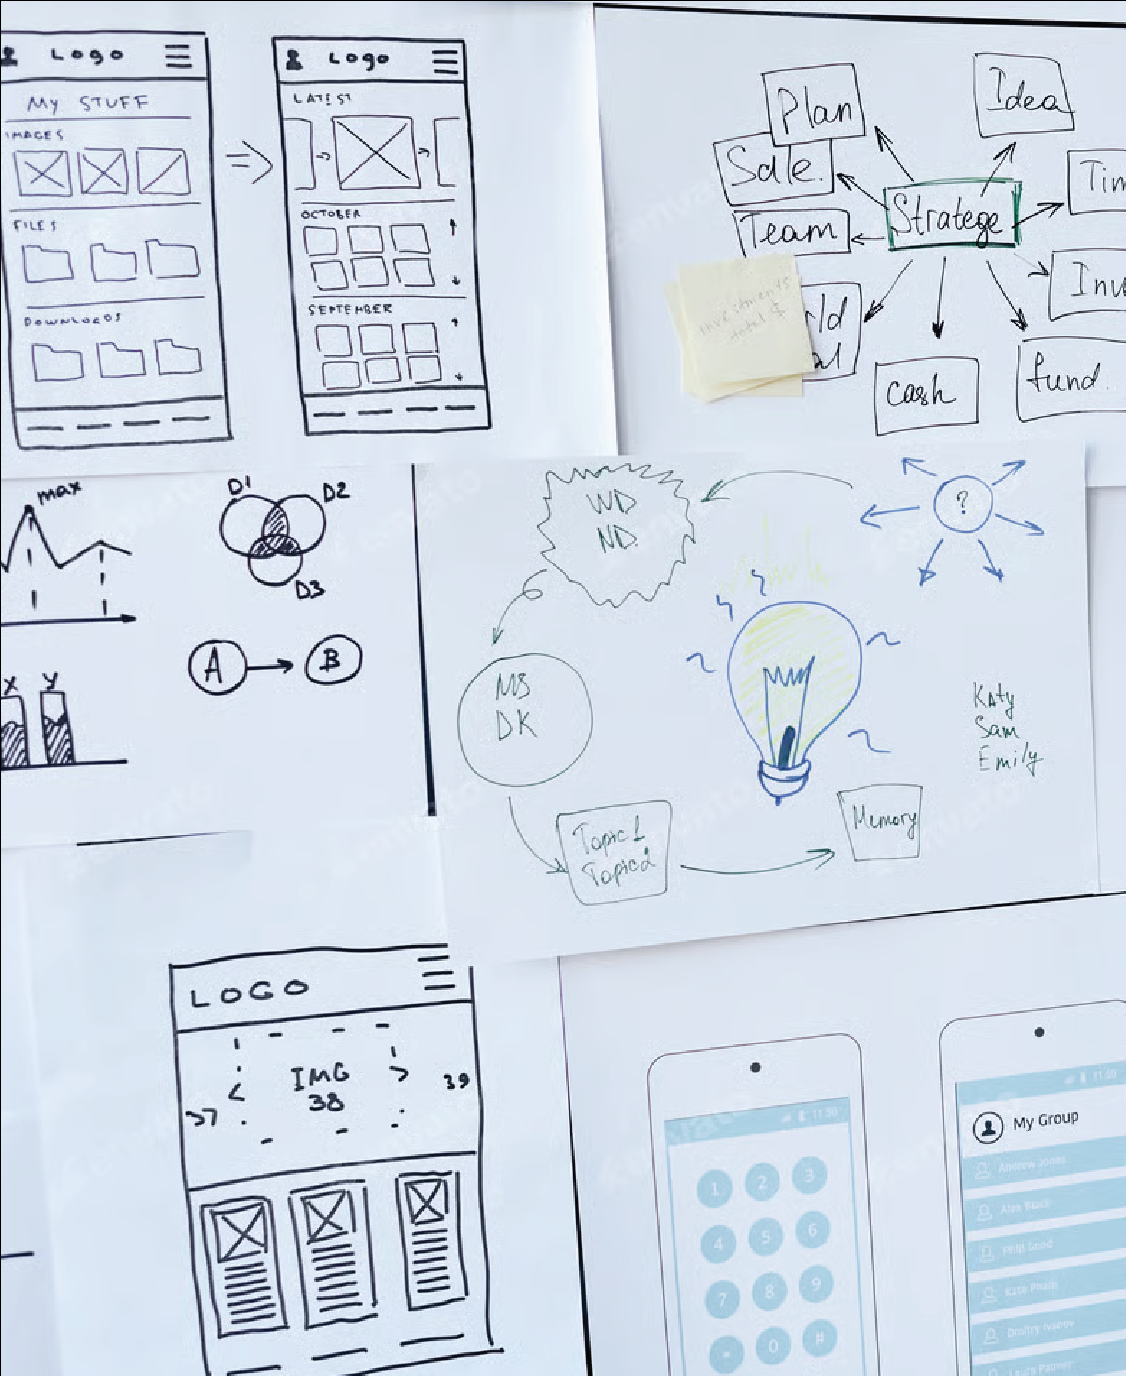 Logo
My STUFF
IMAGES
FILES
DOWNLOADS
Logo
LATEST
OCTOBER
SEPTEMBER
Plan
Idea
Sale.
Team
Stratege
Tim
Inve
investments
total $
rld
al
cash
fund.
max
D1
D2
D3
A
B
X
Y
WD
ND.
?
MS
DK
Topic1
Topic2
Memory
Katy
Sam
Emily
LOGO
37
<
IMG
38
>
39
11:30
1 2 3
4 5 6
7 8 9
0 #
11:30
My Group
Andrew Jones
Alex Black
Philip Good
Kate Pham
Dmitry Ivanov
Laura Palmer